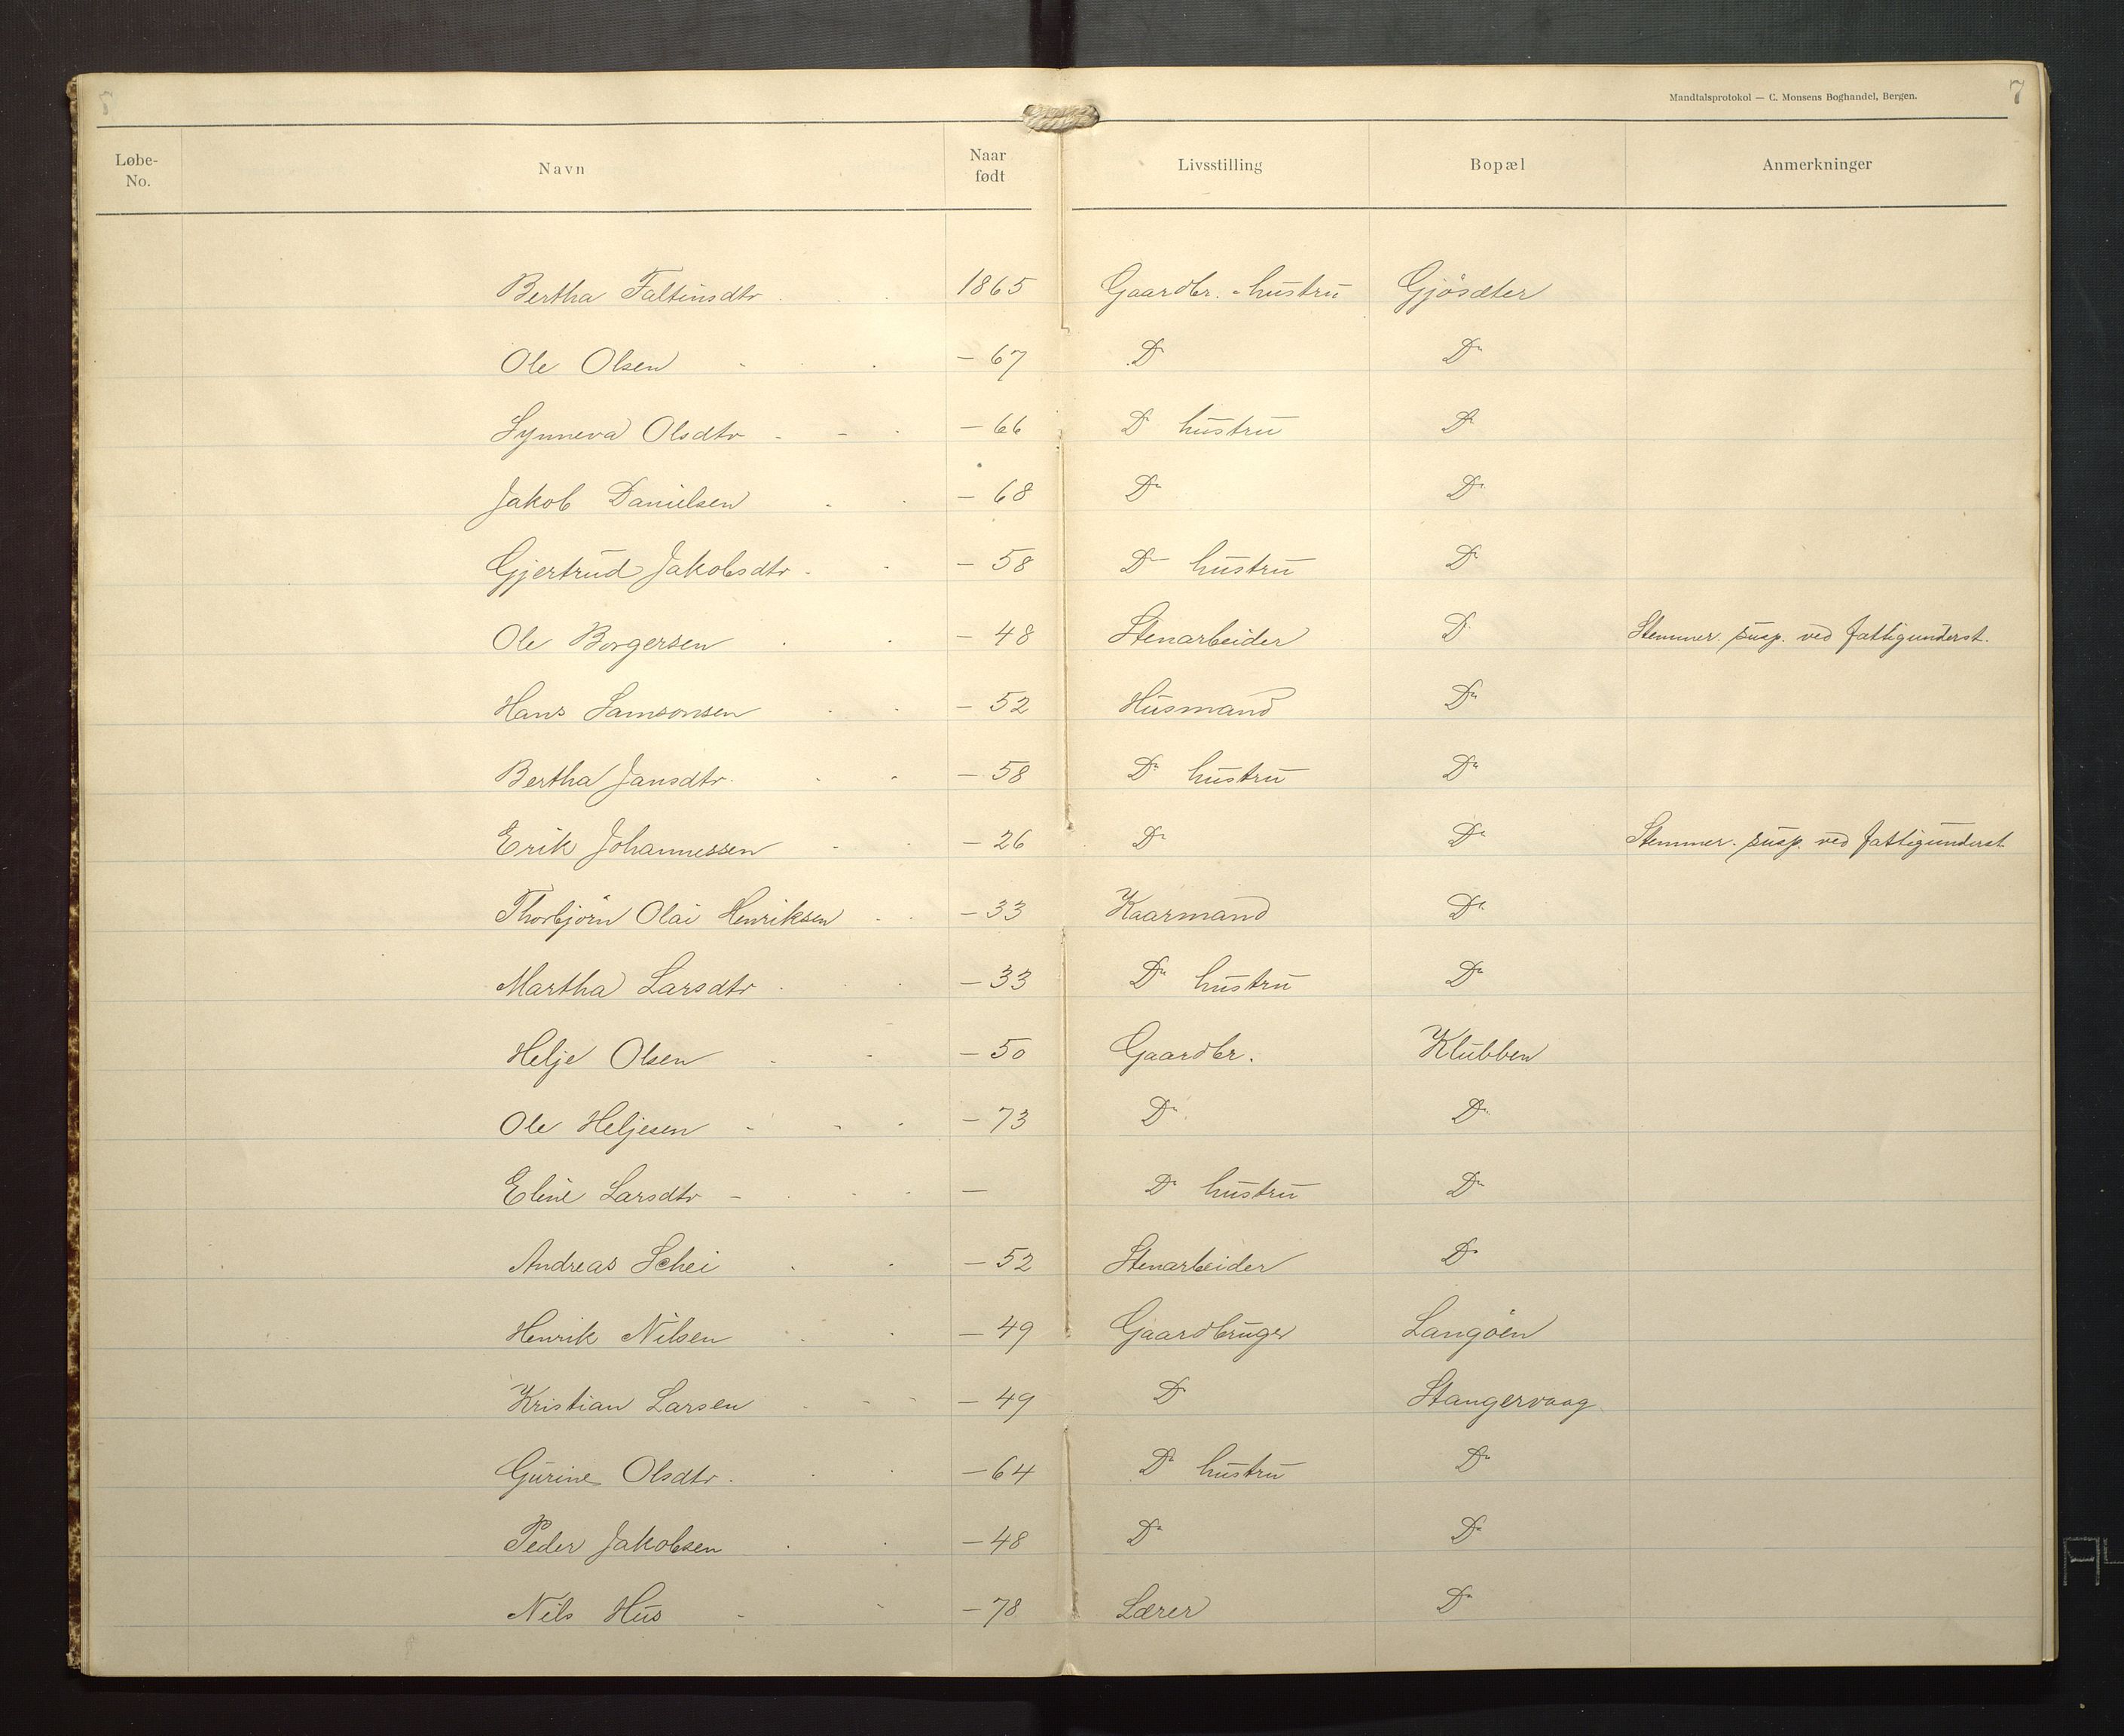 7
Mandtalsprotokol — C. Monsens Boghandel, Bergen.
Løbe-No. Navn Naar født Livsstilling Bopæl Anmerkninger
Bertha Faltinsdtr 1865 Gaardbr. - hustru Gjøsæter
Ole Olsen — 67 Do Do
Synneva Olsdtr — 66 Do hustru Do
Jakob Danielsen — 68 Do Do
Gjertrud Jakobsdtr — 58 Do hustru Do
Ole Borgersen — 48 Stenarbeider Do Stemmer. susp. ved fattigunderst.
Hans Samsonsen — 52 Husmand Do
Bertha Jansdtr. — 58 Do hustru Do
Erik Johannessen — 26 Do Do Stemmer. susp. ved fattigunderst
Thorbjörn Olai Henriksen — 33 Kaarmand Do
Martha Larsdtr — 33 Do hustru Do
Helje Olsen — 50 Gaardbr. Klubben
Ole Heljesen — 73 Do Do
Eline Larsdtr — Do hustru Do
Andreas Schei — 52 Stenarbeider Do
Henrik Nilsen — 49 Gaardbruger Langöen
Kristian Larsen — 49 Do Stangervaag
Gurine Olsdtr. — 64 Do hustru Do
Peder Jakobsen — 48 Do Do
Nils Hus — 78 Lærer Do